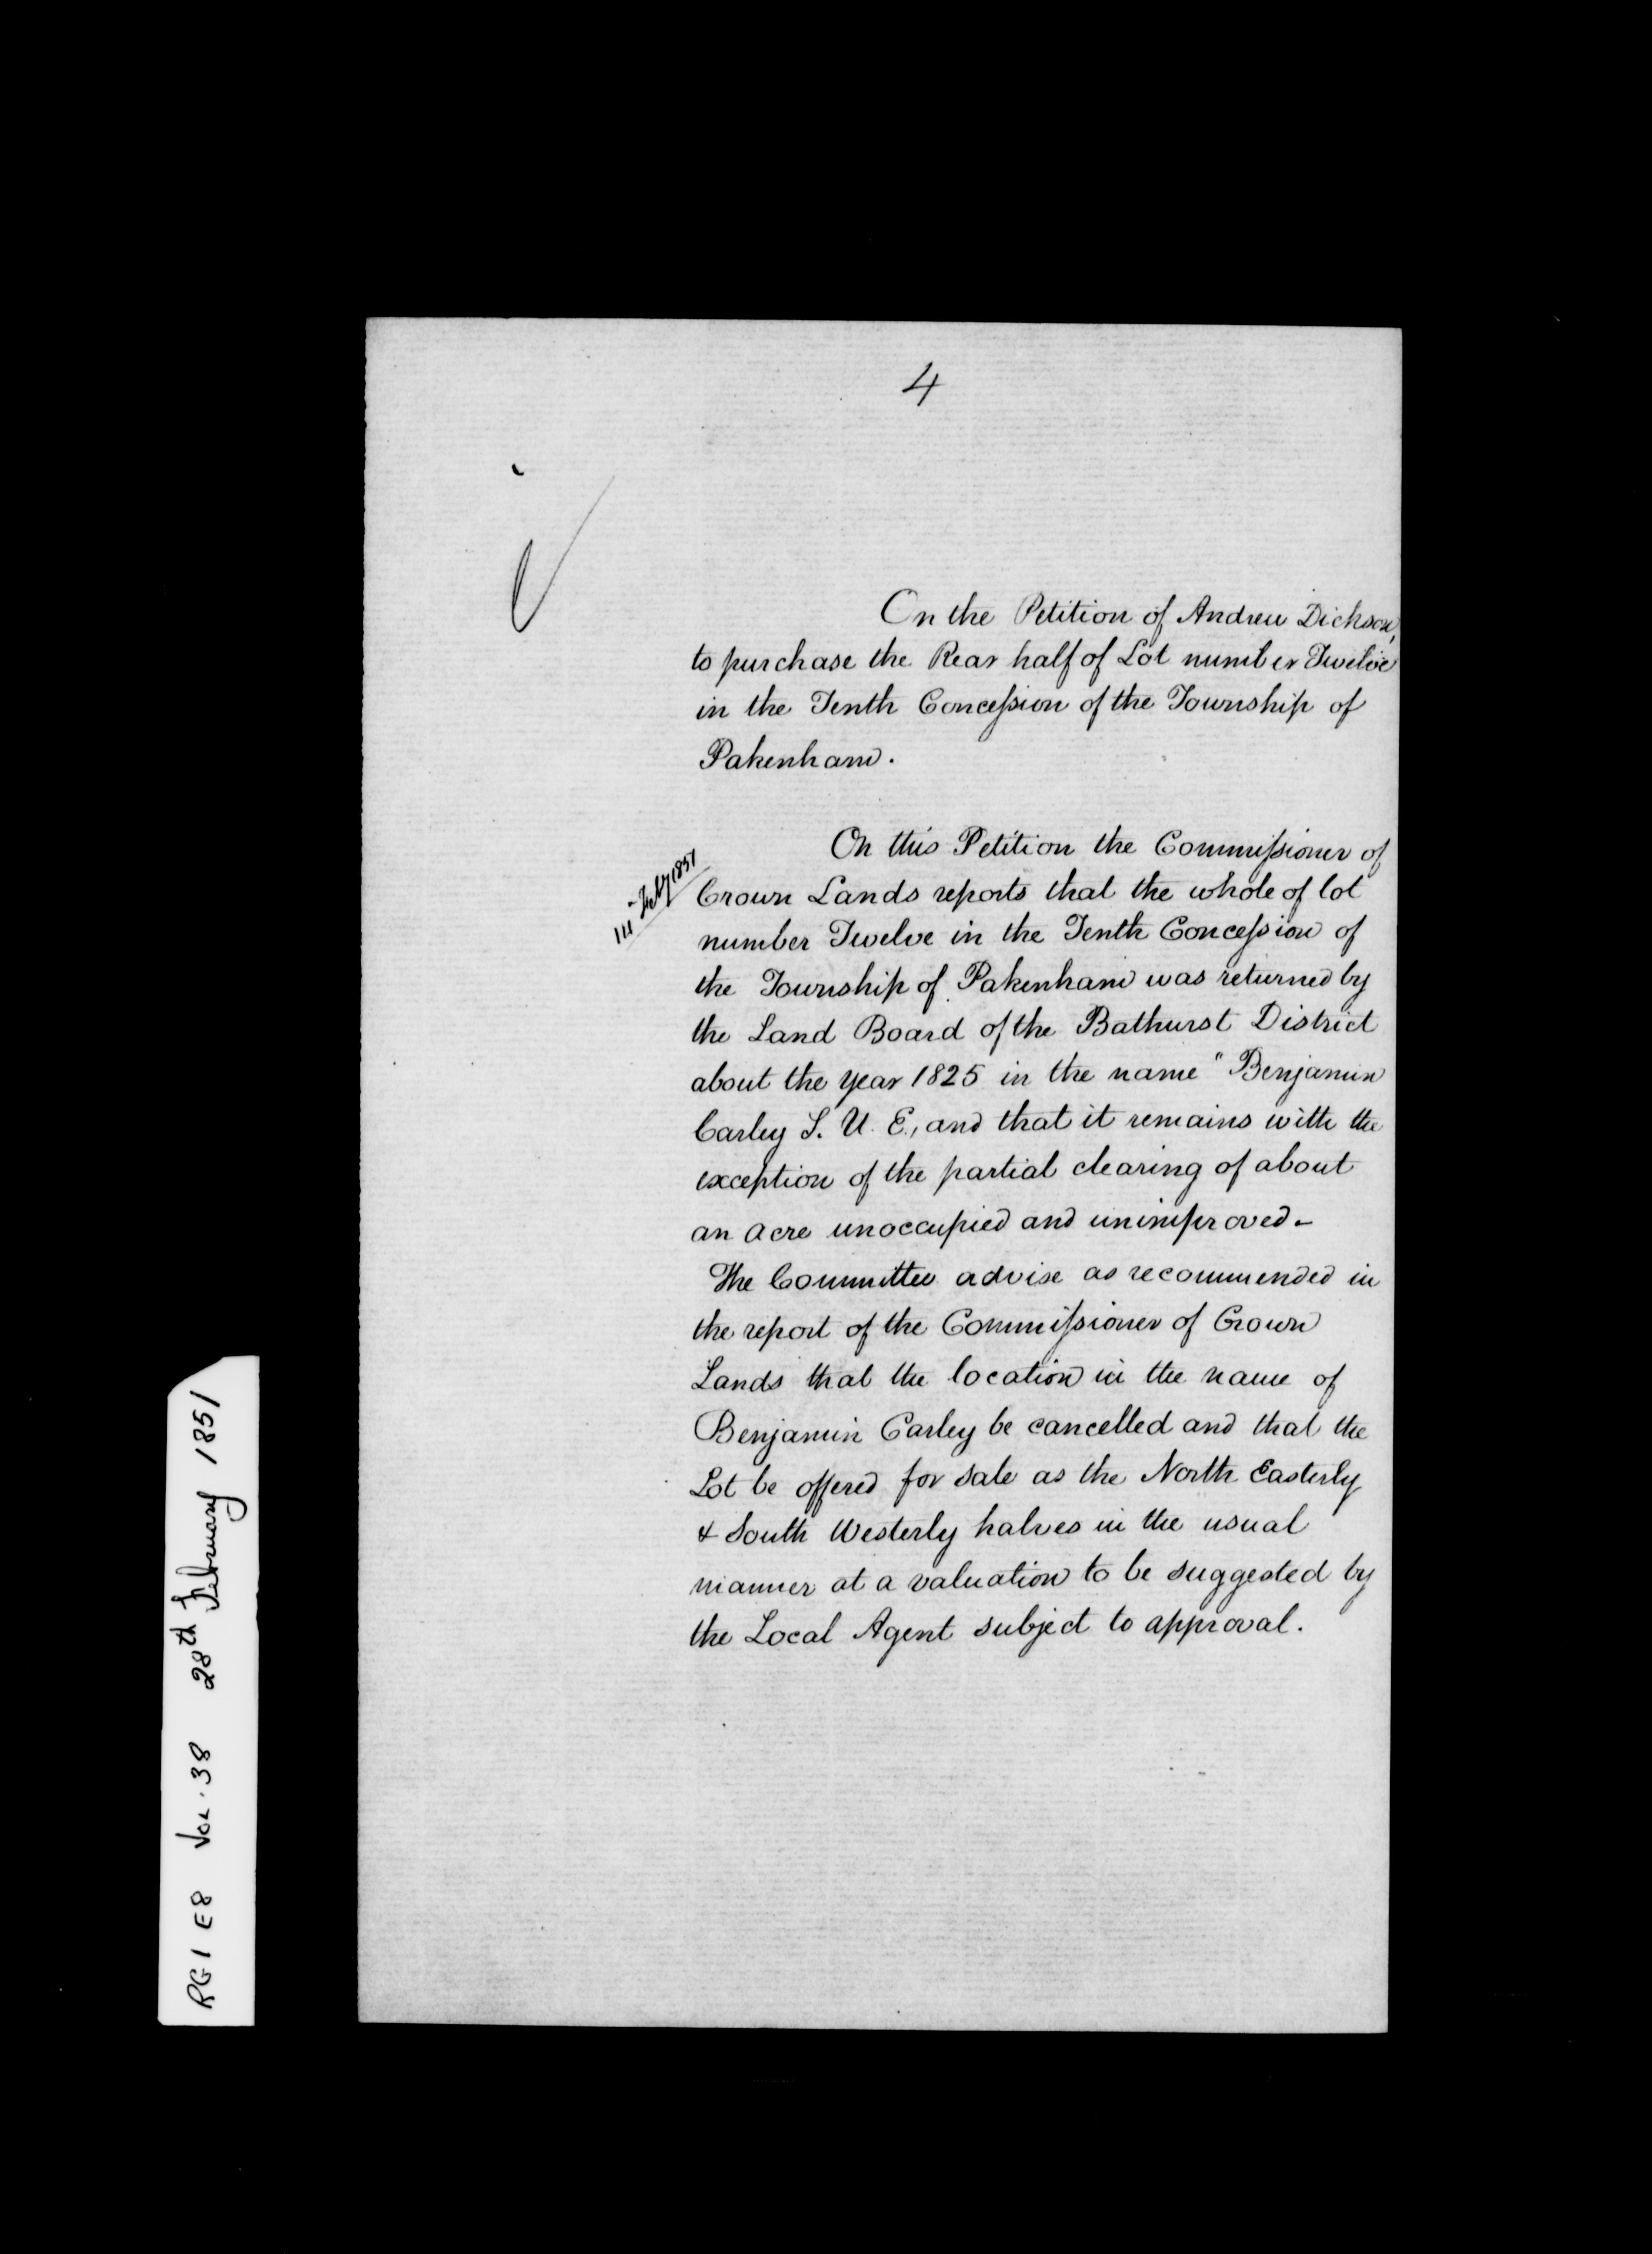 4
On the Petition of Andrew Dickson,
to purchase the Rear half of Lot number Twelve
in the Tenth Concession of the Township of
Pakenham.
On this Petition the Commissioner of
Feby 1851
Crown Lands reports that the whole of lot
number Twelve in the Tenth Concession of
the Township of Pakenham was returned by
the Land Board of the Bathurst District
about the year 1825 in the name "Benjamin
Carley S. U. E., and that it remains with the
exception of the partial clearing of about
an acre unoccupied and unimproved.
The Committee advise as recommended in
the report of the Commissioner of Crown
Lands that the location in the name of
Benjamin Carley be cancelled and that the
Lot be offered for sale as the North Easterly
& South Westerly halves in the usual
manner at a valuation to be suggested by
the Local Agent subject to approval.
RG 1 E8 Vol. 38 28th February 1851